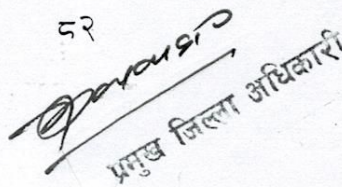 ८२
प्रमुख जिल्ला अधिकारी